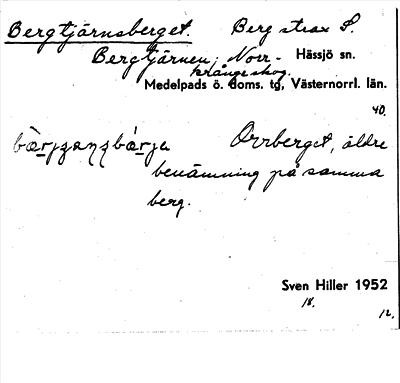 Bergtjärnsberget. Berg strax S.
Bergtjärnen, Norr- Hässjö sn.
krångeskog.
Medelpads ö. doms. tg, Västernorrl. län.
40.
Orrberget, äldre
benämning på samma
berg.
Sven Hiller 1952
18.
12.